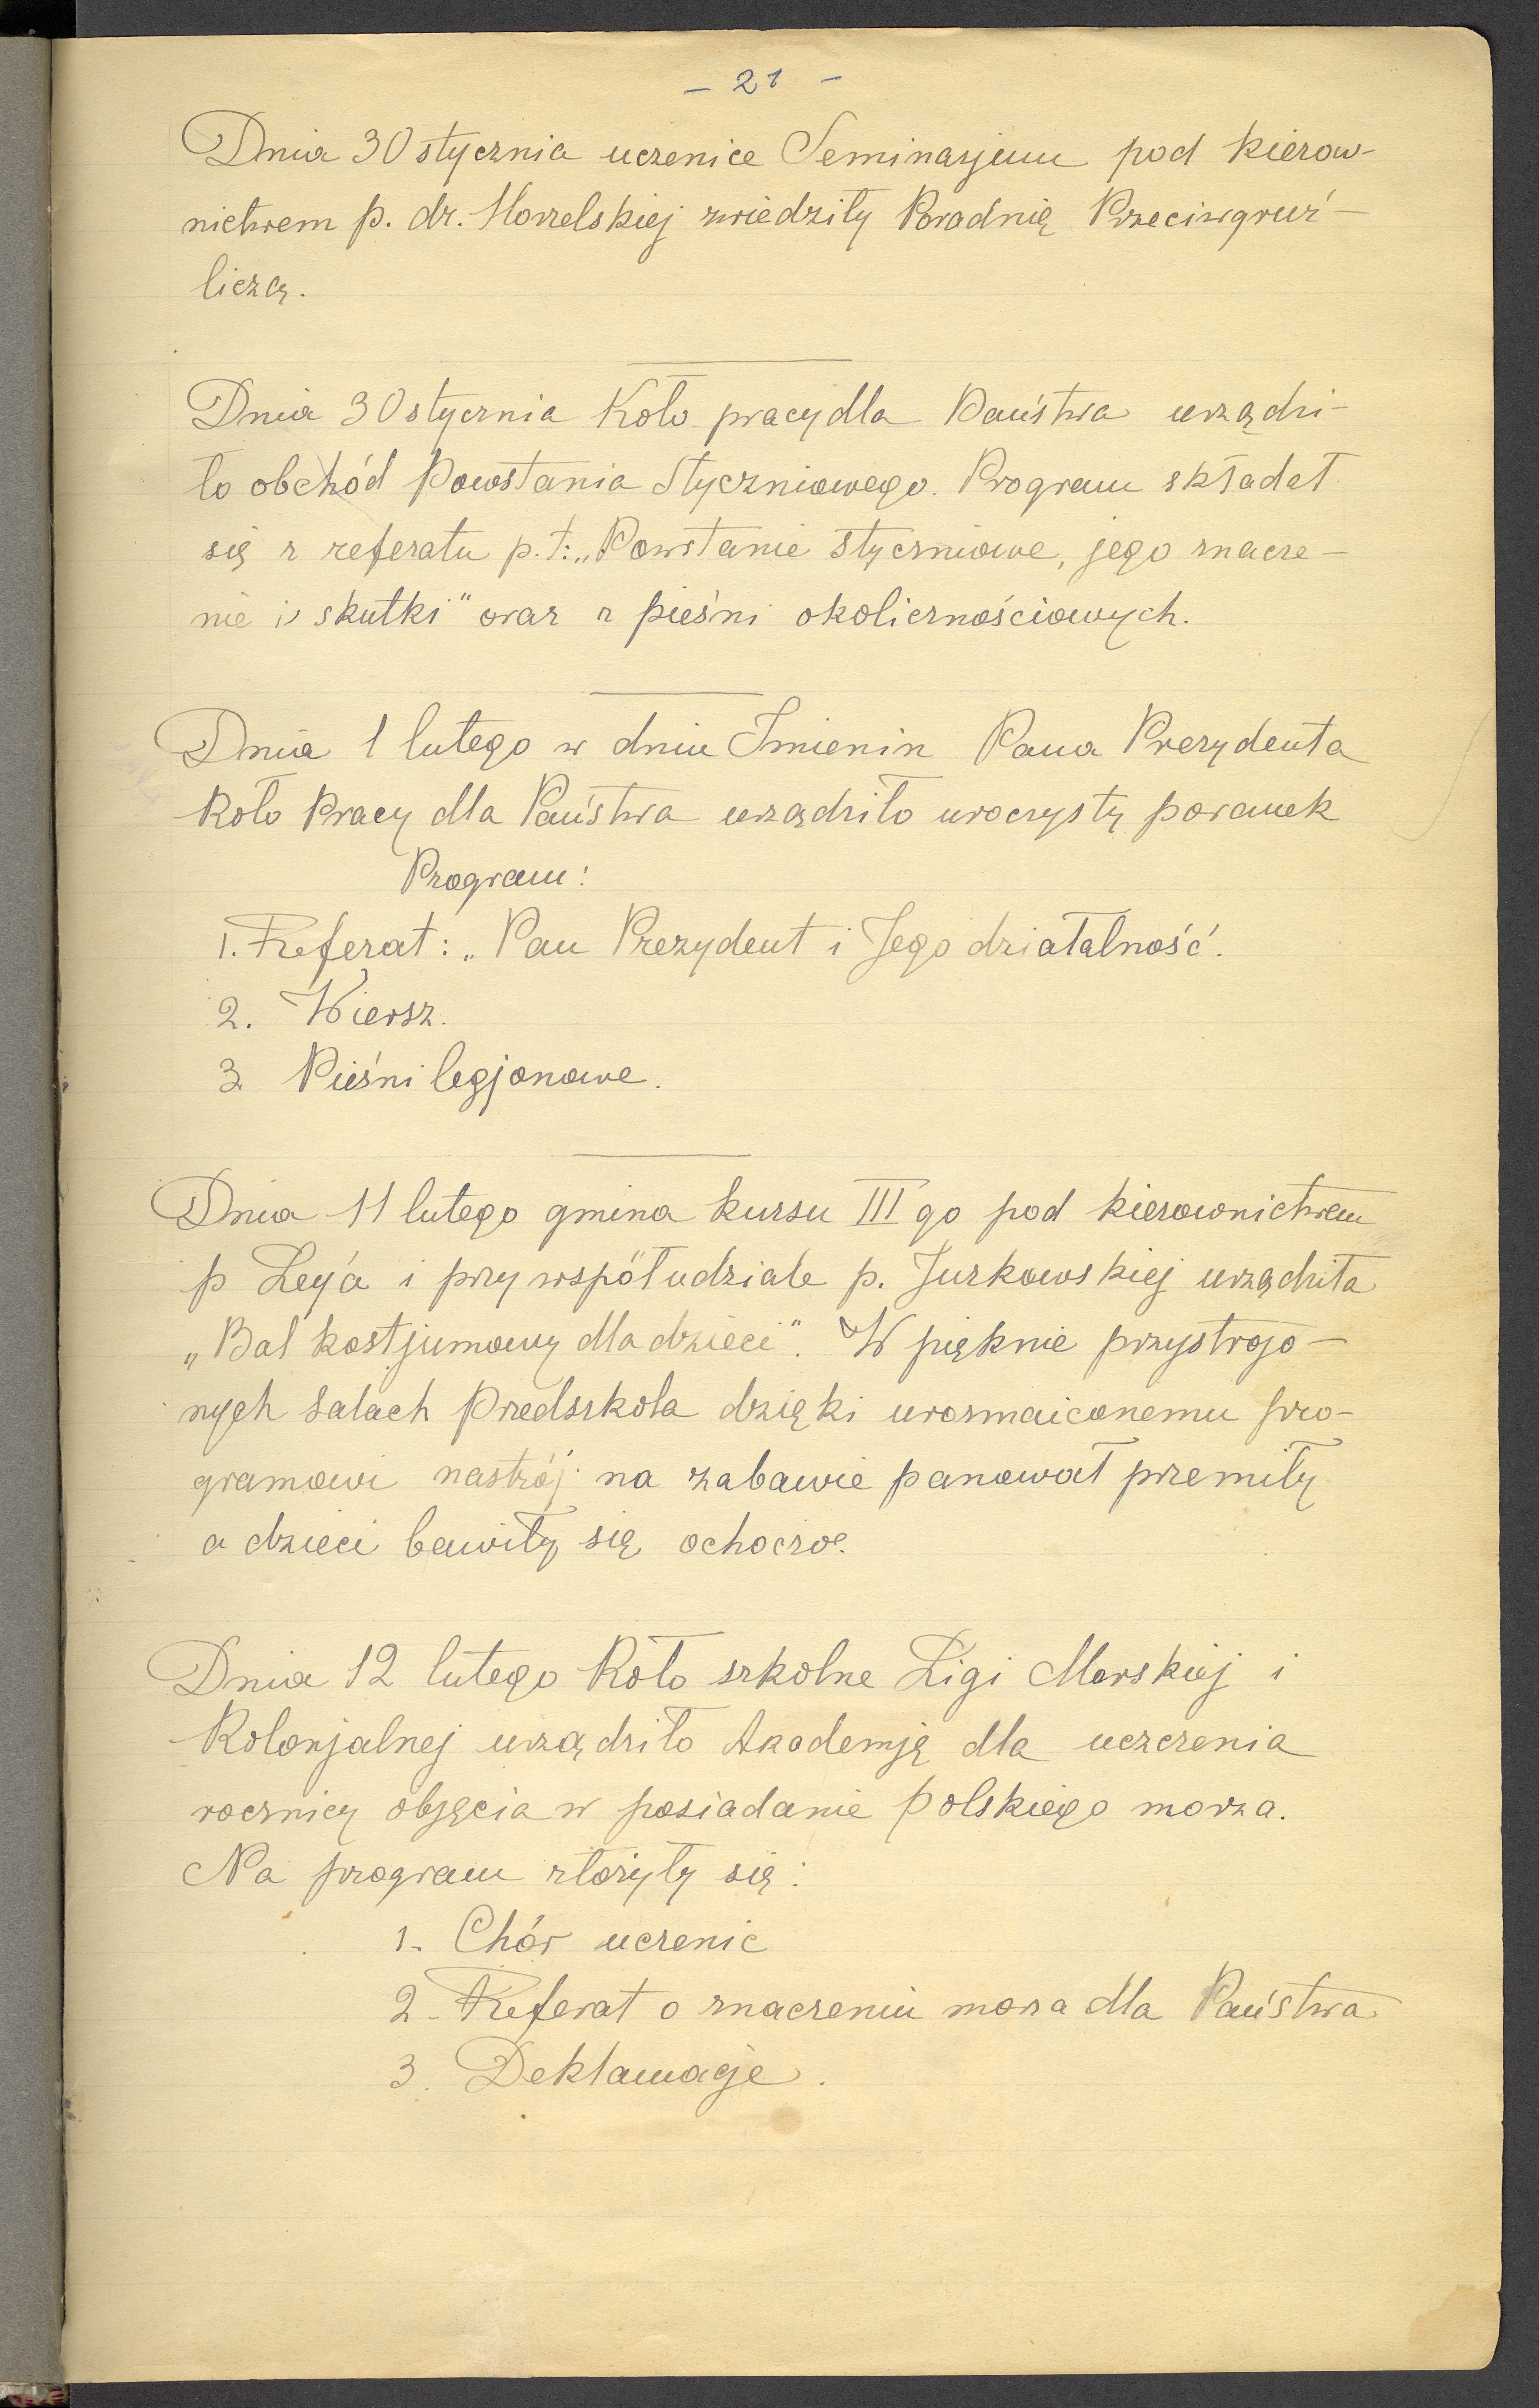 - 21 -
Dnia 30 stycznia uczenice Seminarjum pod kierow-
nictwem p. dr. Horzelskiej zwiedziły Poradnię Przeciwgruź-
liczą.
Dnia 30 stycznia Koło pracy dla Państwa urządzi-
ło obchód Powstania Styczniowego. Program składał
się z referatu p.t: „Powstanie styczniowe, jego znacze-
nie i skutki" oraz z pieśni okolicznościowych.
Dnia 1 lutego w dniu Imienin Pana Prezydenta
Koło Pracy dla Państwa urządziło uroczysty poranek
Program:
1. Referat: „Pan Prezydent i Jego działalność.
2. Wiersz.
3. Pieśni legjonowe.
Dnia 11 lutego gmina kursu III go pod kierownictwem
p i przy współudziale p. Jurkowskiej urządziła
„Bal kostjumowy dla dzieci". W pięknie przystrojo-
nych salach Przedszkola dzięki urozmaiconemu pro-
gramowi nastrój na zabawie panował przemiły
a dzieci bawiły się ochoczo.
Dnia 12 lutego Koło szkolne Ligi Morskiej i
Kolonjalnej urządziło Akademję dla uczczenia
rocznicy objęcia w posiadanie polskiego morza.
Na program złożyły się:
1. Chór uczenic
2. Referat o znaczeniu morza dla Państwa
3. Deklamacje.